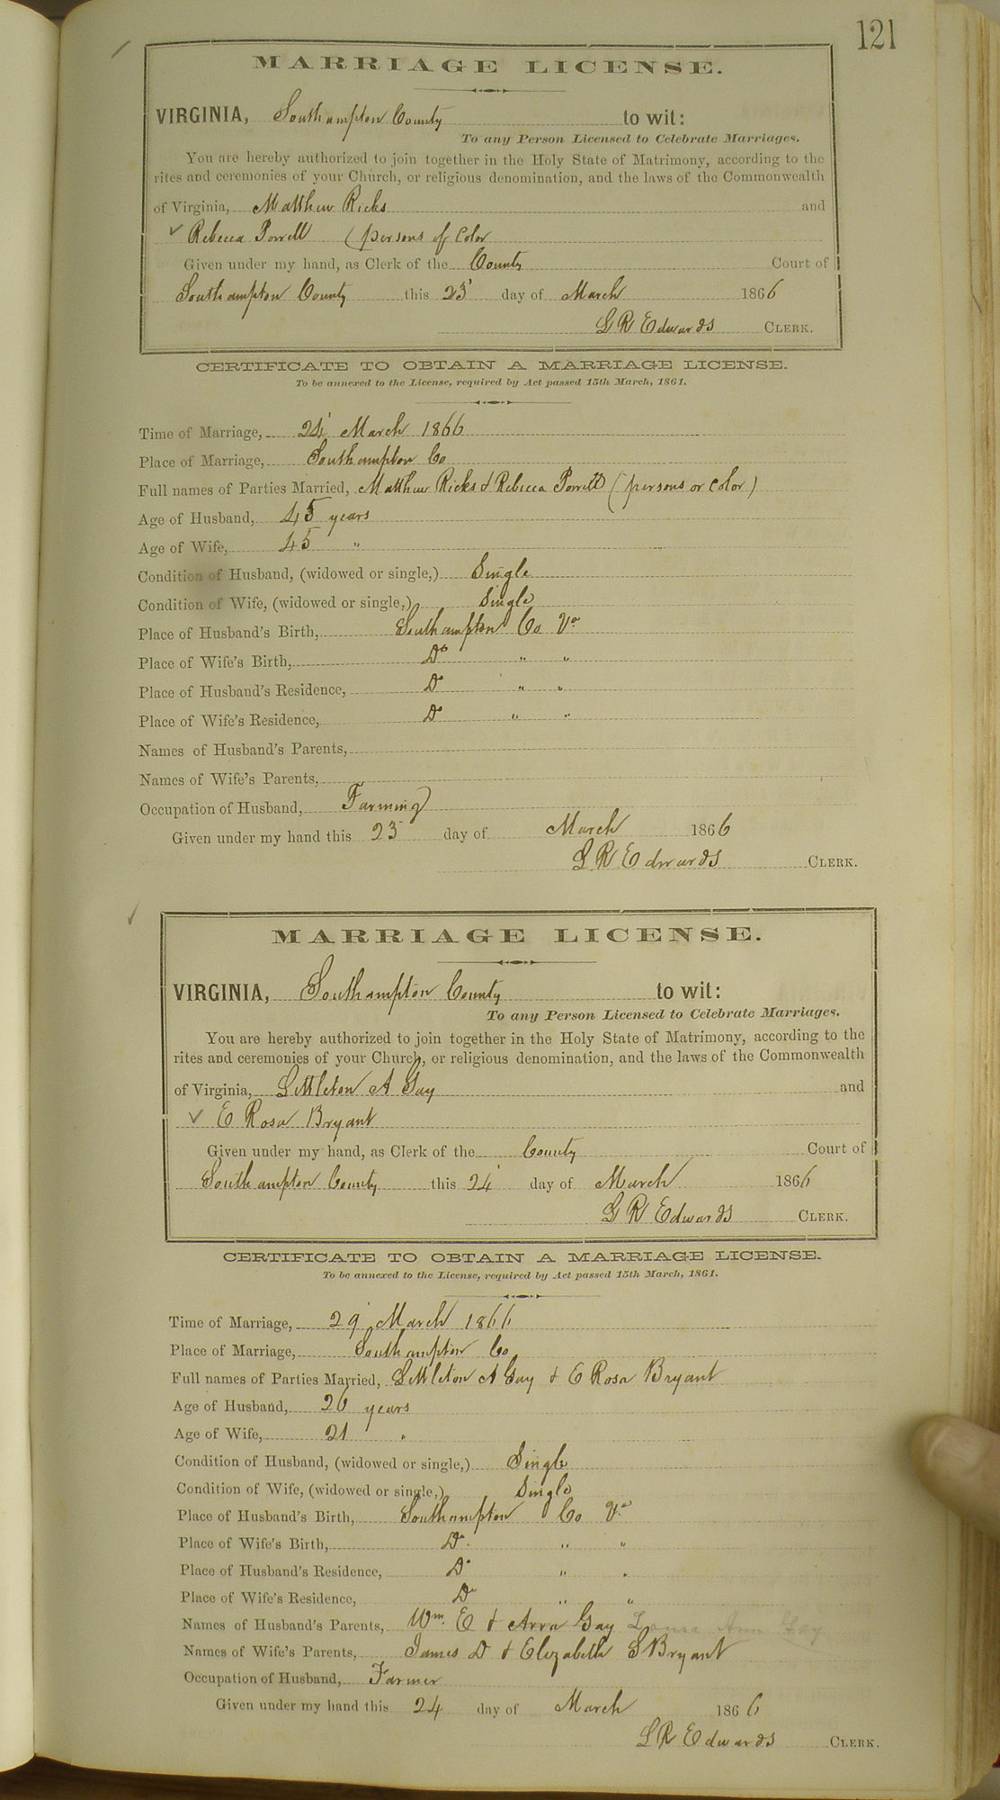 121
MARRIAGE LICENSE.
VIRGINIA, Southampton County to wit:
To any Person Licensed to Celebrate Marriages.
You are hereby authorized to join together in the Holy State of Matrimony, according to the
rites and ceremonies of your Church, or religious denomination, and the laws of the Commonwealth
of Virginia, Matthew Ricks and
✓ Rebecca (persons of Color
Given under my hand, as Clerk of the County Court of
Southampton County this 23 day of March 1866
Edwards CLERK.
CERTIFICATE TO OBTAIN A MARRIAGE LICENSE.
To be annexed to the License, required by Act passed 15th March, 1861.
Time of Marriage, 24 March 1866
Place of Marriage, Southampton Co
Full names of Parties Married, Matthew Ricks & Rebecca (persons or Color)
Age of Husband, 45 years
Age of Wife, 45 "
Condition of Husband, (widowed or single,) Single
Condition of Wife, (widowed or single,) Single
Place of Husband's Birth, Southampton Co Va
Place of Wife's Birth, Do " "
Place of Husband's Residence, Do " "
Place of Wife's Residence, Do " "
Names of Husband's Parents,
Names of Wife's Parents,
Occupation of Husband, Farming
Given under my hand this 23 day of March 1866
L R Edwards CLERK.
MARRIAGE LICENSE.
VIRGINIA, Southampton County to wit:
To any Person Licensed to Celebrate Marriages.
You are hereby authorized to join together in the Holy State of Matrimony, according to the
rites and ceremonies of your Church, or religious denomination, and the laws of the Commonwealth
of Virginia, Littleton A Gay and
✓ E Rosa Bryant
Given under my hand, as Clerk of the County Court of
Southampton County this 24 day of March 1866
L R Edwards CLERK.
CERTIFICATE TO OBTAIN A MARRIAGE LICENSE.
To be annexed to the License, required by Act passed 15th March, 1861.
Time of Marriage, 29 March 1866
Place of Marriage, Southampton Co
Full names of Parties Married, Littleton A Gay & E Rosa Bryant
Age of Husband, 26 years
Age of Wife, 21 "
Condition of Husband, (widowed or single,) Single
Condition of Wife, (widowed or single,) Single
Place of Husband's Birth, Southampton Co Va
Place of Wife's Birth, Do " "
Place of Husband's Residence, Do " "
Place of Wife's Residence, Do " "
Names of Husband's Parents, Wm. E & Gay Ann Gay
Names of Wife's Parents, James D & Elizabeth S Bryant
Occupation of Husband, Farmer
Given under my hand this 24 day of March 1866
L R Edwards CLERK.